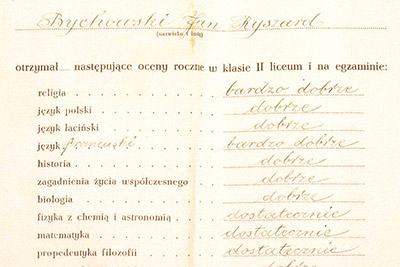 Bychowski Jan Ryszard
(nazwisko i imię)
otrzymał następujące oceny roczne w klasie II liceum i na egzaminie:
religia . . . . . . . . . . bardzo dobrze
język polski . . . . . . . dobrze
język łaciński . . . . . . dobrze
język francuski . . . . . . bardzo dobrze
historia . . . . . . . . . . dobrze
zagadnienia życia współczesnego . dobrze
biologia . . . . . . . . . . dobrze
fizyka z chemią i astronomią . . . dostatecznie
matematyka . . . . . . . . dostatecznie
propedeutyka filozofii . . . . dostatecznie
dobrze